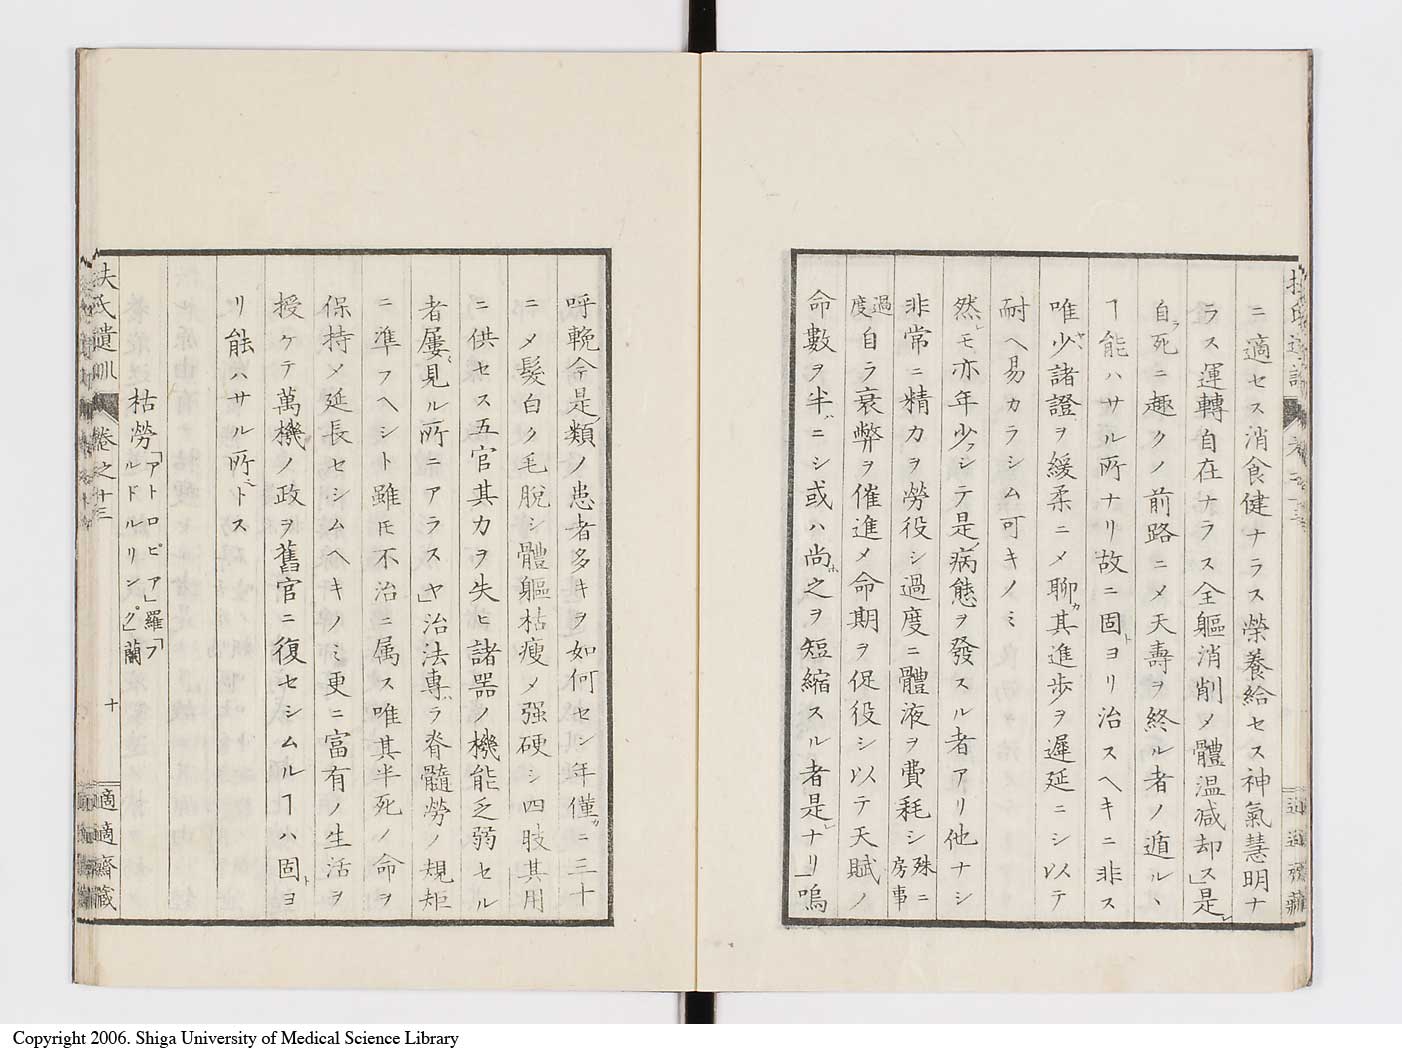 ニ適セス消食健ナラス榮養給セス神氣慧明ナ
ラス運轉自在ナラス全軀消削メ體温減却ス」是レ
自ラ死ニ趣クノ前路ニメ天壽ヲ終ル者ノ遁ルヽ
ヿ能ハサル所ナリ故ニ固トヨリ治スヘキニ非ス
唯少諸證ヲ緩柔ニメ聊カ其進歩ヲ遲延ニシ以テ
耐ヘ易カラシム可キノミ
然レモ亦年少フシテ是ノ病態ヲ發スル者アリ他ナシ
非常ニ精力ヲ勞役シ過度ニ體液ヲ費耗シ殊ニ房事
過度自ラ衰弊ヲ催進メ命期ヲ促役シ以テ天賦ノ
命數ヲ半バニシ或ハ尚ホ之ヲ短縮スル者是レナリ」嗚
呼輓今是類ノ患者多キヲ如何セン年僅カニ三十
ニメ髮白ク毛脫シ體軀枯瘦メ强硬シ四肢其用
ニ供セス五官其力ヲ失ヒ諸器ノ機能乏弱セル
者屢〻見ル所ニアラスヤ」治法專ハラ脊髓勞ノ規矩
ニ準フヘシト雖モ不治ニ属ス唯其半死ノ命ヲ
保持メ延長セシムヘキノミ更ニ富有ノ生活ヲ
授ケテ萬機ノ政ヲ舊官ニ復セシムルヿハ固トヨ
リ能ハサル所トス
枯勞「アトロピア」羅「フルドルリング」蘭
扶氏遺訓 卷之十三 十 適適齋藏
Copyright 2006. Shiga University of Medical Science Library